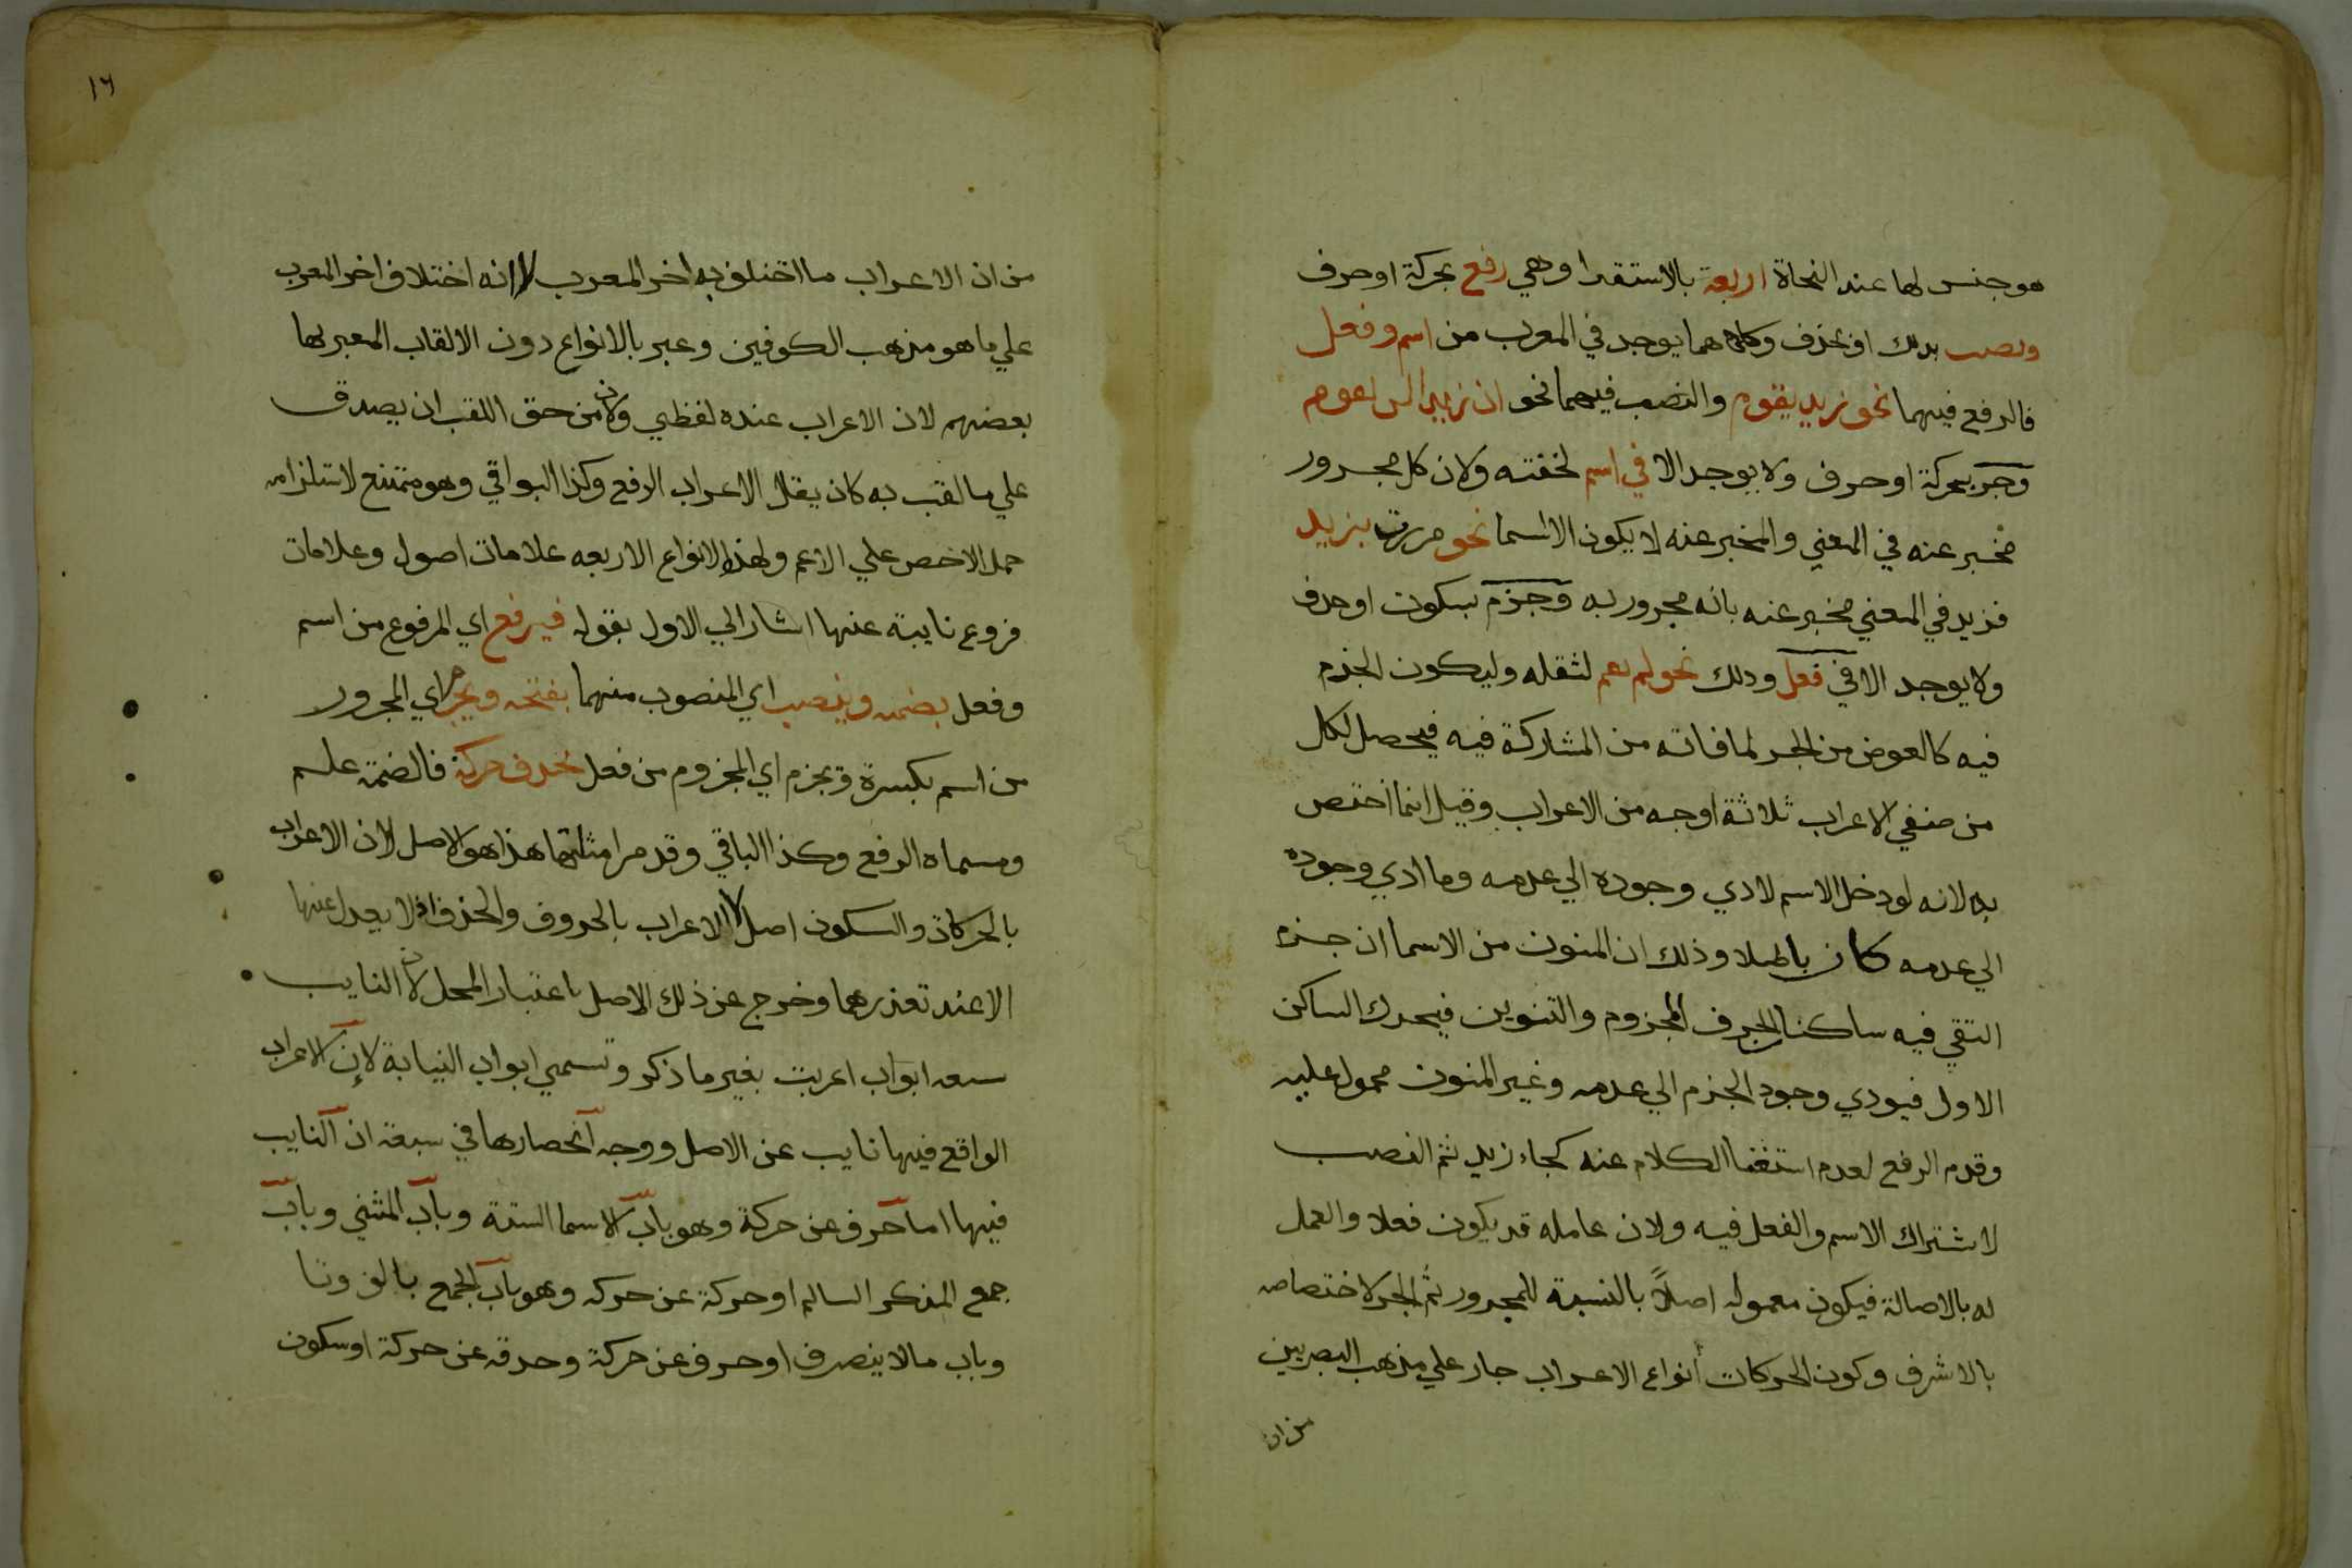 هو جنس لها عند النحاة اربعة بالاستقرا وهي رفع بحركة او حرف
ونصب بذلك او بحذف وكلاهما يوجد في المعرب من اسم وفعل
فالرفع فيهما نحو زيد يقوم والنصب فيهما نحو ان زيدا لن يقوم
وجر بحركة او حرف ولا يوجد الا في اسم لخفته ولان كل مجرور
مخبر عنه في المعني والمخبر عنه لا يكون الا اسما نحو مررت بزيد
فزيد في المعني مخبر عنه بانه مجرور به وجزم بسكون او حذف
ولا يوجد الا في فعل وذلك نحو لم يقم لثقله وليكون الجزم
فيه كالعوض من الجر لما فاته من المشاركة فيه فيحصل لكل
من صنفي الاعراب ثلاثة اوجه من الاعراب وقيل انما اختص
به لانه لو دخل الاسم لادي وجوده الي عدمه وما ادي وجوده
الي عدمه كان باطلا وذلك ان المنون من الاسما ان جزم
التقي فيه ساكنان الحرف المجزوم والتنوين فيحرك الساكن
الاول فيودي وجود الجزم الي عدمه وغير المنون محمول عليه
وقدم الرفع لعدم استغنا الكلام عنه كجاء زيد ثم النصب
لاشتراك الاسم والفعل فيه ولان عامله قد يكون فعلا والعمل
له بالاصالة فيكون معموله اصلاً بالنسبة للمجرور ثم الجر لاختصاصه
بالاشرف وكون الحركات أنواع الاعراب جار علي مذهب البصريين
من ان
١٦
من ان الاعراب ما اختلف به اخر المعرب لا انه اختلاف اخر المعرب
علي ما هو مذهب الكوفين وعبر بالانواع دون الالقاب المعبر بها
بعضهم لان الاعراب عنده لفظي ولان من حق اللقب ان يصدق
علي ما لقب به كان يقال الاعراب الرفع وكذا البواقي وهو ممتنع لاستلزامه
حمل الاخص علي الاعم ولهذه الانواع الاربعه علامات اصول وعلامات
فروع نايبة عنها اشار الي الاول بقوله فيرفع اي المرفوع من اسم
وفعل بضمه وينصب اي المنصوب منهما بفتحه ويجر اي المجرور
من اسم بكسرة ويجزم اي المجزوم من فعل بحذف حركة فالضمة علم
ومسماه الرفع وكذا الباقي وقد مر امثلتها هذا هو الاصل لان الاعراب
بالحركات والسكون اصل لا الاعراب بالحروف والحذف اذ لا يعدل عنها
الا عند تعذرهما وخرج عن ذلك الاصل باعتبار المحل لا النايب
سبعه ابواب اعربت بغير ما ذكر وتسمي ابواب النيابة لان الاعراب
الواقع فيها نايب عن الاصل ووجه انحصارها في سبعة ان النايب
فيها اما حرف عن حركة وهو باب الاسما الستة وباب المثني وباب
جمع المذكر السالم او حركة عن حركه وهو باب الجمع بالف وتا
وباب ما لا ينصرف او حرف عن حركة وحذفه عن حركة او سكون